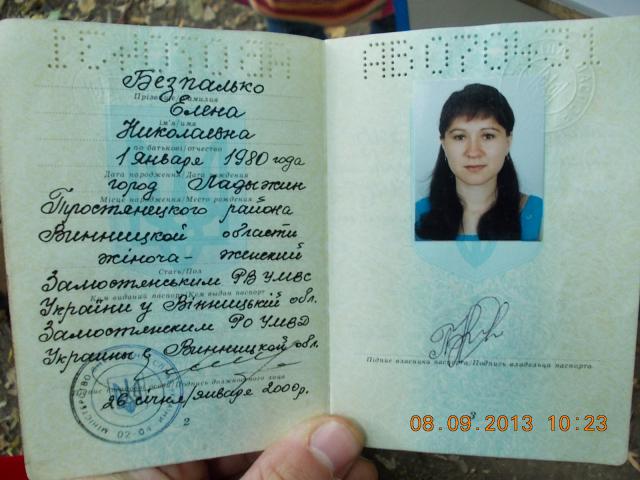 Безпалько
Прізвище/Фамилия
Елена
ім'я/имя
Николаевна
по батькові/отчество
1 января 1980 года
Дата народження/Дата рождения
город Ладыжин
Місце народження/Место рождения
Тростянецкого района
Винницкой области
жіноча - женский
Стать/Пол
Замостенським РВ УМВС
Ким виданий паспорт/Кем выдан паспорт
України у Вінницькій обл.
Замостенским РО УМВД
Украины в Винницкой обл.
Підпис посадової особи/Подпись должностного лица
26 січня/января 2000 р.
2
Підпис власника паспорта/Подпись владельца паспорта
3
08.09.2013 10:23